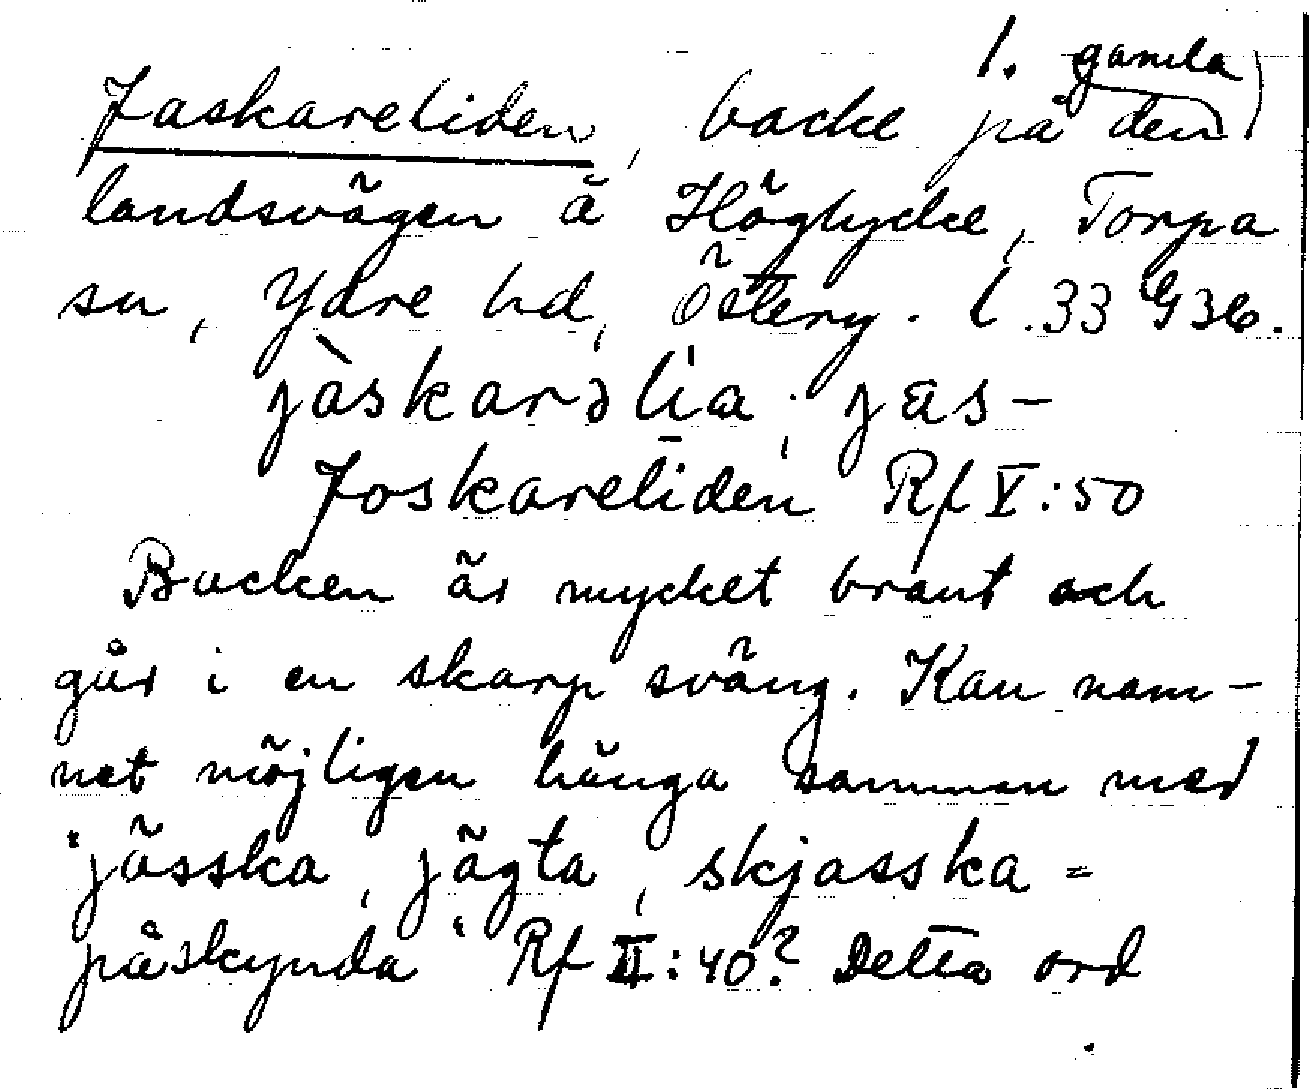 1. gamla
Jaskareliden, backe på den
landsvägen å Höglycke, Torpa
sn, Ydre hd, Österg. l.33 G36.
jàskarəlia, jas-
Joskareliden Rf V:50
Backen är mycket brant och
går i en skarp sväng. Kan nam-
net möjligen hänga samman med
"jässka, jägta, skjasska =
påskynda" Rf II:40? Detta ord